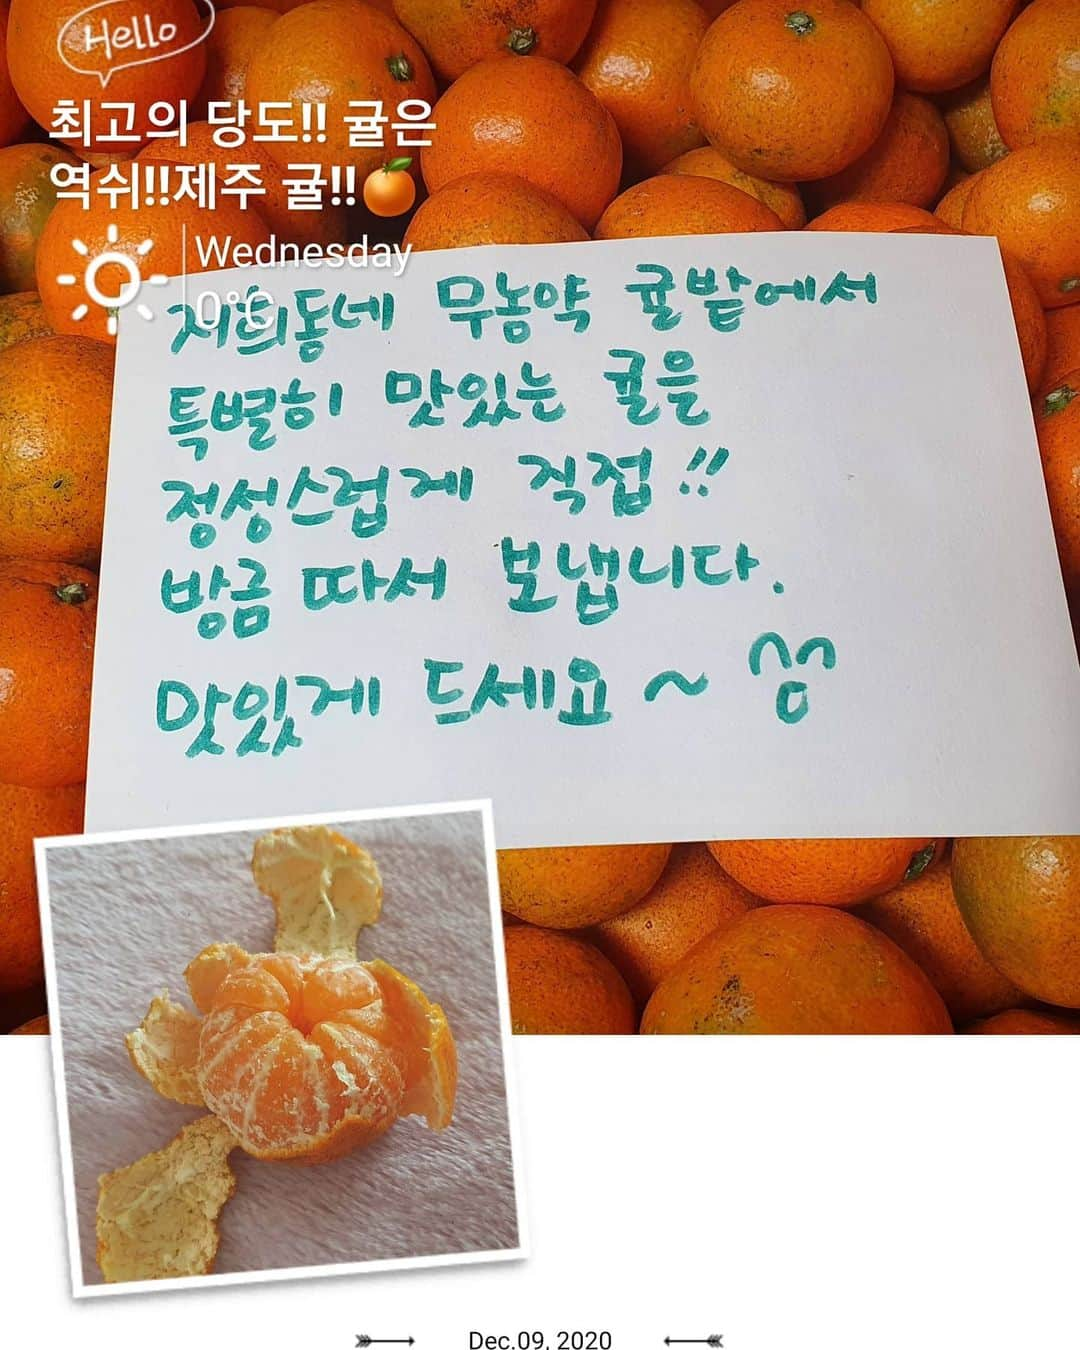 Hello
최고의 당도!! 귤은
역쉬!!제주 귤!!
Wednesday
0°C
저희동네 무농약 귤밭에서
특별히 맛있는 귤을
정성스럽게 직접!!
방금 따서 보냅니다.
맛있게 드세요~ ^^
Dec.09, 2020